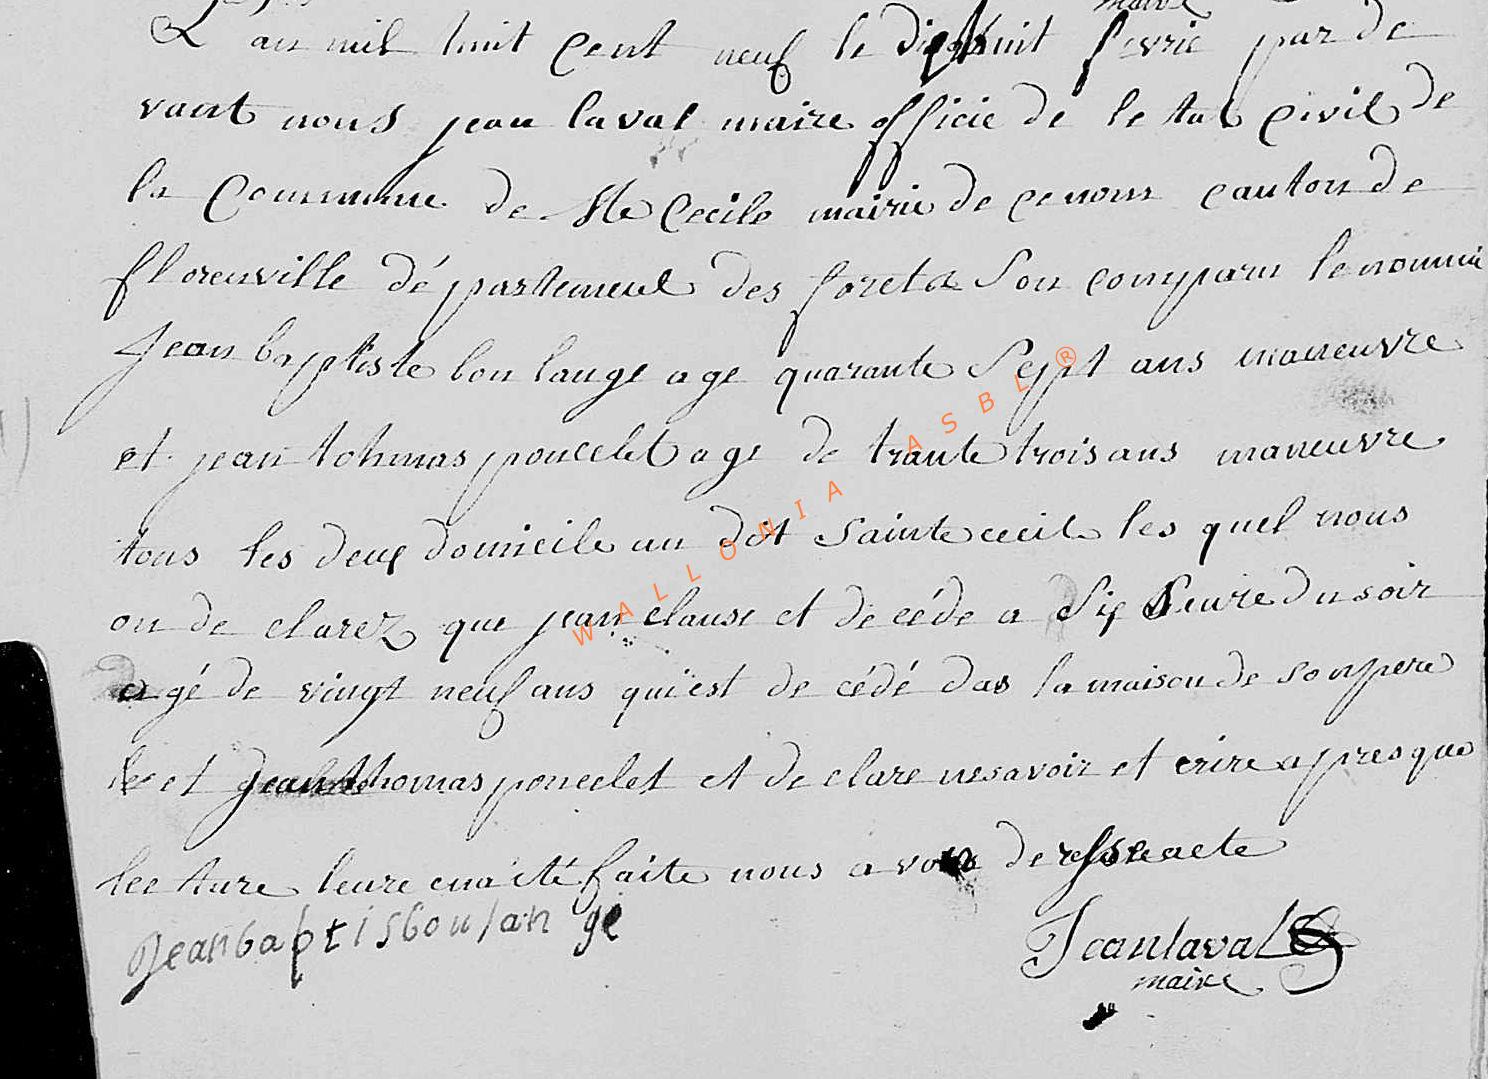 maire
L an mil huit cent neuf le dixhuit fevrie par de
vant nous jean laval maire officie de le tat civil de
la Commune de Ste Cecile mairie de ce nom canton de
florenville département des foret Son comparu le nommé
jean baptiste bou lange age quarante Sept ans maneuvre
et jean tohmas poncelet age de trante trois ans maneuvre
tous les deux domicile au dit Sainte cecile les quel nous
on de clarez que jean clause et de céde a Six heure du soir
agé de vingt neuf ans qui est de cédé das la maison de son pere
et jean thomas poncelet et de clare ne savoir et crire apres que
lec ture leure en a été faite nous avons de resse acte
jean bapt is bou lan ge
Jean laval
maire
WALLONIA ASBL®